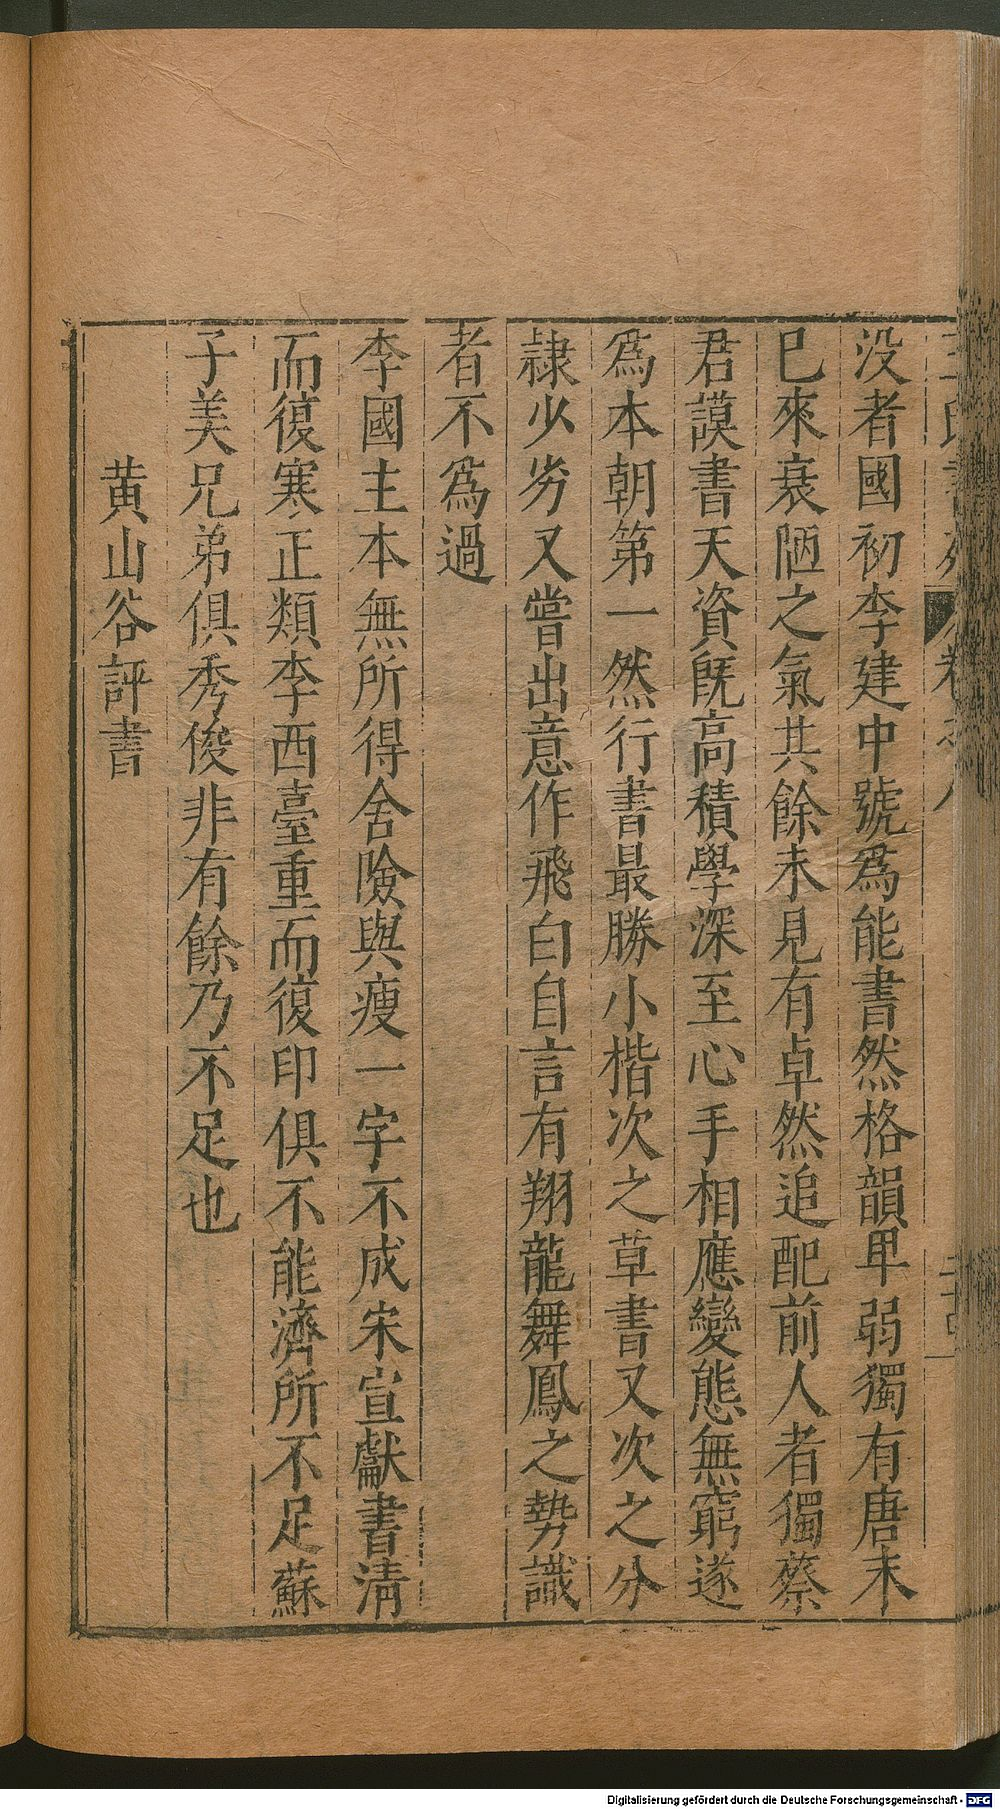 没者國初李建中號爲能書然格韻卑弱獨有唐末
已來衰陋之氣其餘未見有卓然追配前人者獨蔡
君謨書天資既高積學深至心手相應變態無窮遂
爲本朝第一然行書最勝小楷次之草書又次之分
隷少劣又嘗出意作飛白自言有翔龍舞鳳之勢識
者不爲過
李國主本無所得舍險與瘦一字不成宋宣獻書淸
而復寒正類李西臺重而復印俱不能濟所不足蘇
子美兄弟俱秀俊非有餘乃不足也
黄山谷評書
Digitalisierung gefördert durch die Deutsche Forschungsgemeinschaft - DFG